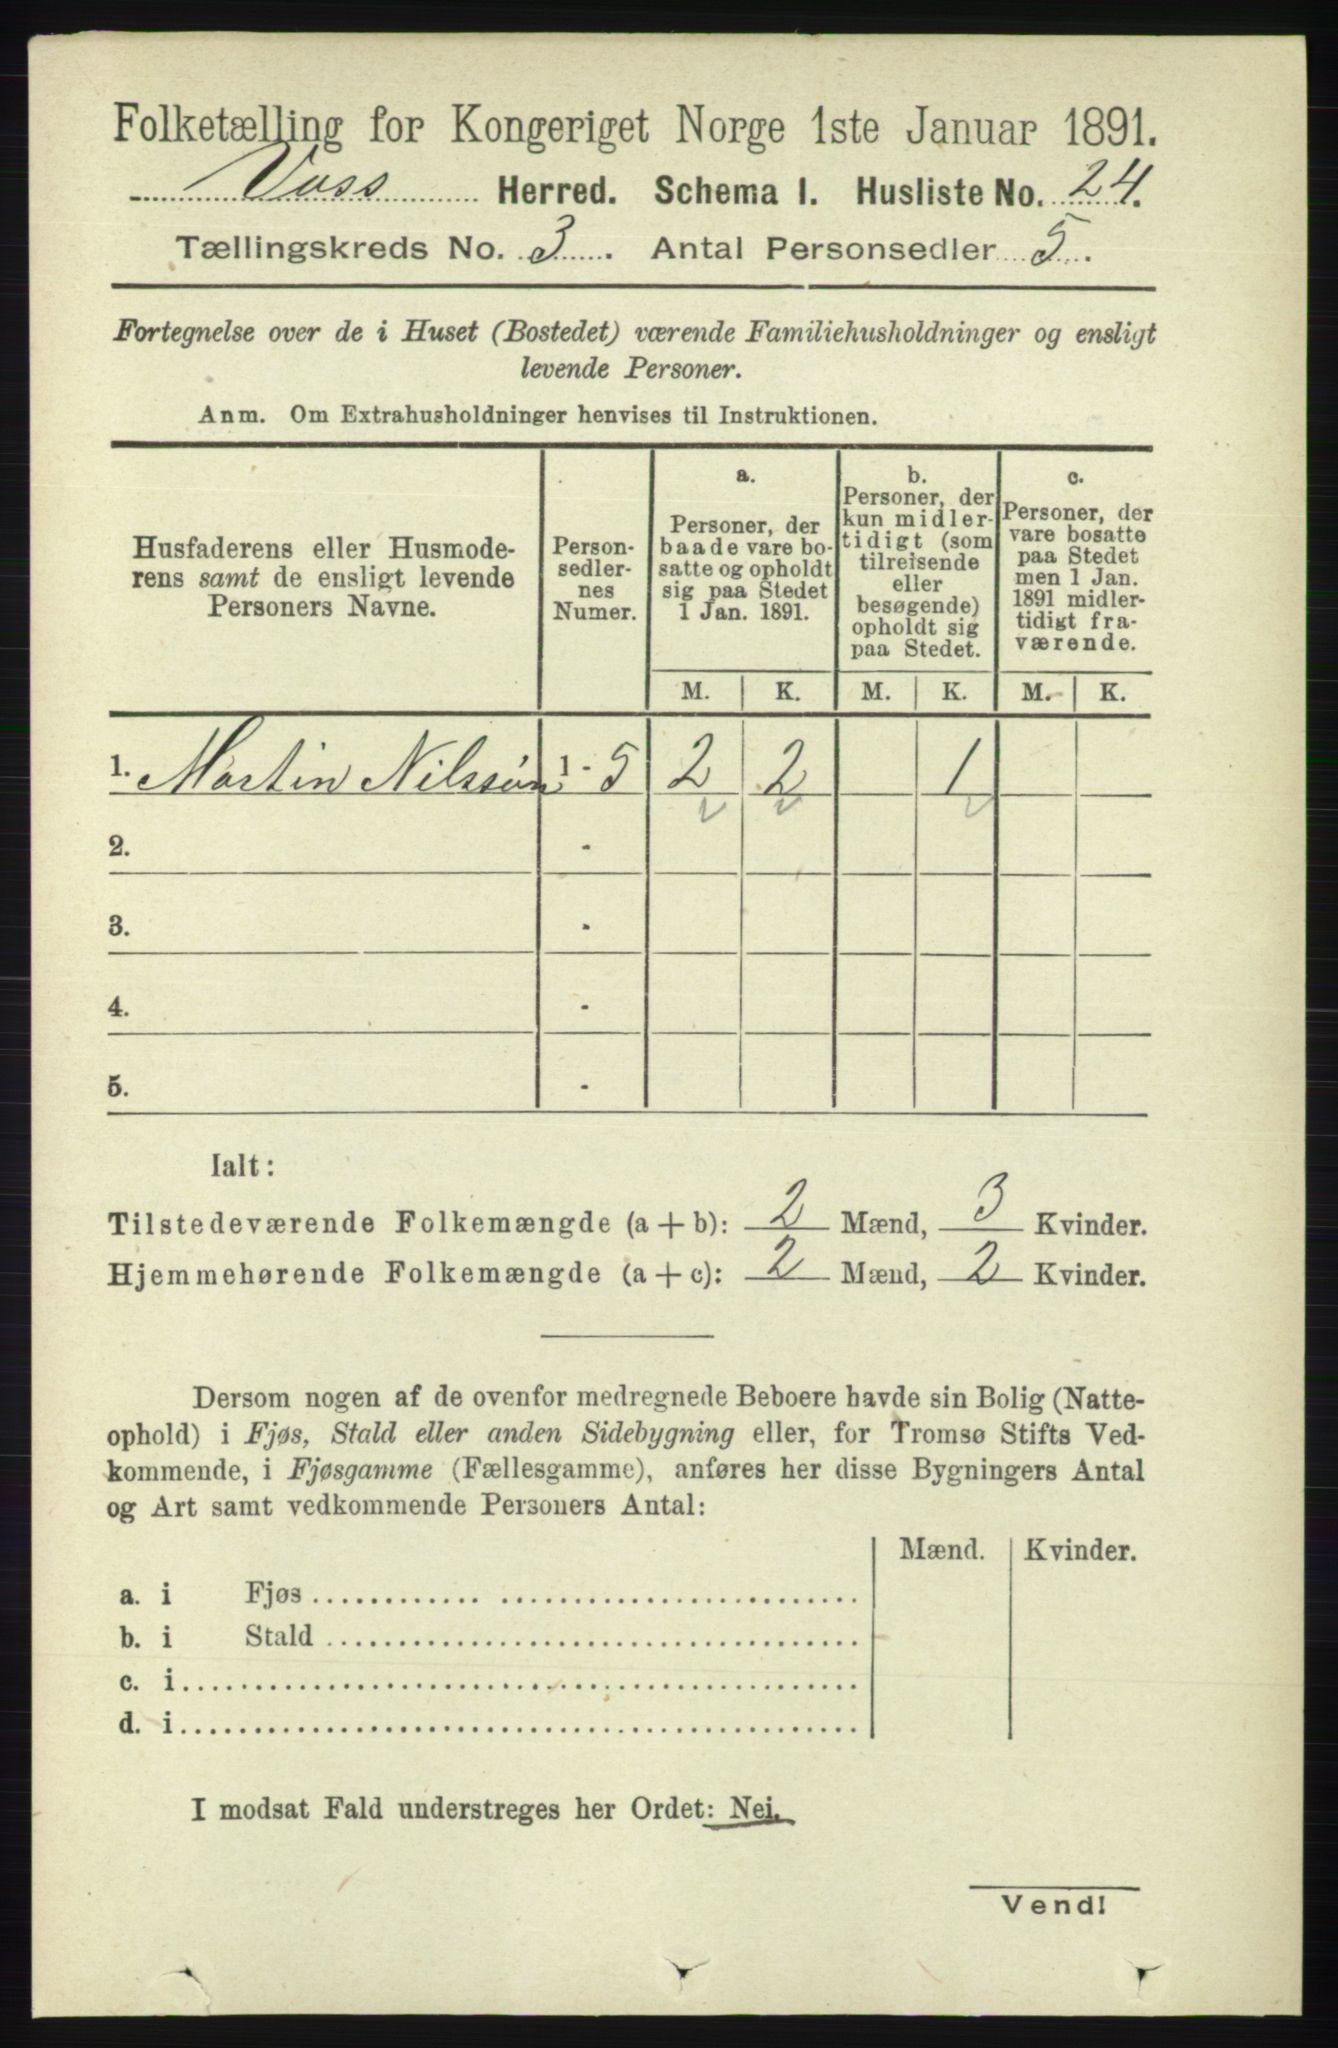 Folketælling for Kongeriget Norge 1ste Januar 1891.
Voss Herred. Schema I. Husliste No. 24.
Tællingskreds No. 3. Antal Personsedler 5.
Fortegnelse over de i Huset (Bostedet) værende Familiehusholdninger og ensligt
levende Personer.
Anm. Om Extrahusholdninger henvises til Instruktionen.
Husfaderens eller Husmode-
rens samt de ensligt levende
Personers Navne.
Person-
sedler-
nes
Numer.
a.
Personer, der
baade vare bo-
satte og opholdt
sig paa Stedet
1 Jan. 1891.
b.
Personer, der
kun midler-
tidigt (som
tilreisende
eller
besøgende)
opholdt sig
paa Stedet.
c.
Personer, der
vare bosatte
paa Stedet
men 1 Jan.
1891 midler-
tidigt fra-
værende.
M. K. M. K. M. K.
1. Martin Nilssøn 1 - 5 2 2 1
2. -
3. -
4. -
5. -
Ialt:
Tilstedeværende Folkemængde (a + b): 2 Mænd, 3 Kvinder.
Hjemmehørende Folkemængde (a + c): 2 Mænd, 2 Kvinder.
Dersom nogen af de ovenfor medregnede Beboere havde sin Bolig (Natte-
ophold) i Fjøs, Stald eller anden Sidebygning eller, for Tromsø Stifts Ved-
kommende, i Fjøsgamme (Fællesgamme), anføres her disse Bygningers Antal
og Art samt vedkommende Personers Antal:
Mænd. Kvinder.
a. i Fjøs
b. i Stald
c. i
d. i
I modsat Fald understreges her Ordet: Nei.
Vend!